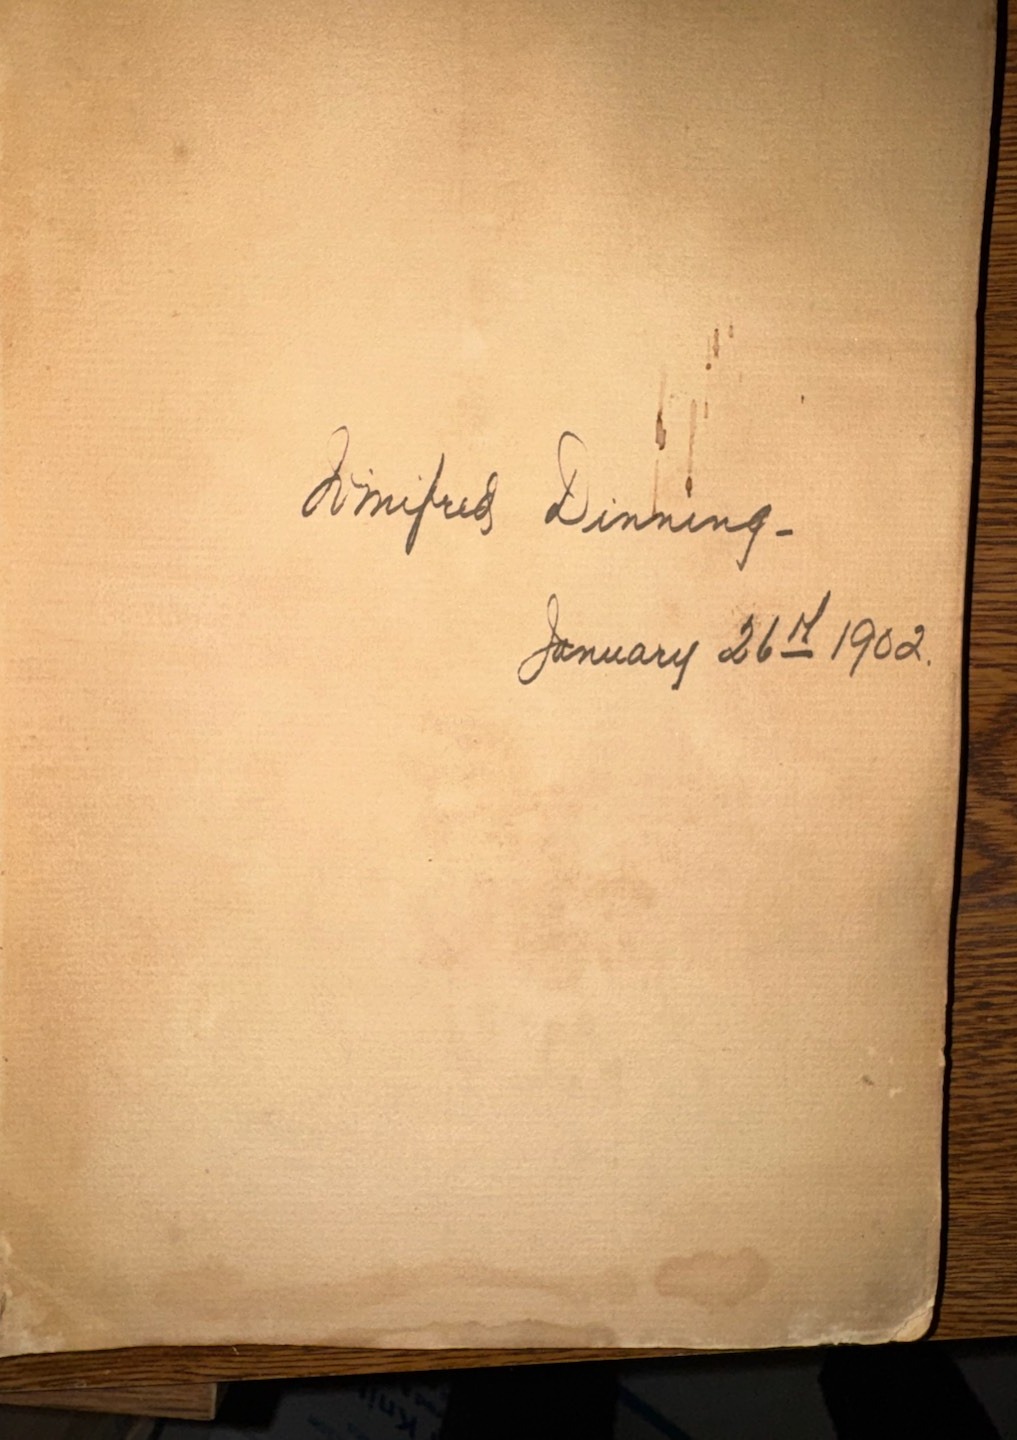 Winifred Dinning-
January 26th 1902.